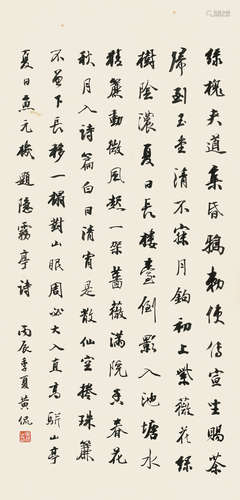 綠槐夾道集昏鴉勅使傳宣坐賜茶
歸到玉堂清不寐月鉤初上紫薇花綠
樹陰濃夏日長樓臺倒影入池塘水
精簾動微風起一架薔薇滿院香春花
秋月入詩篇白日清宵是散仙空捲珠簾
不曾下長移一榻對山眠周必大入直高駢山亭
夏日魚元機題隱霧亭詩 丙辰季夏黄侃